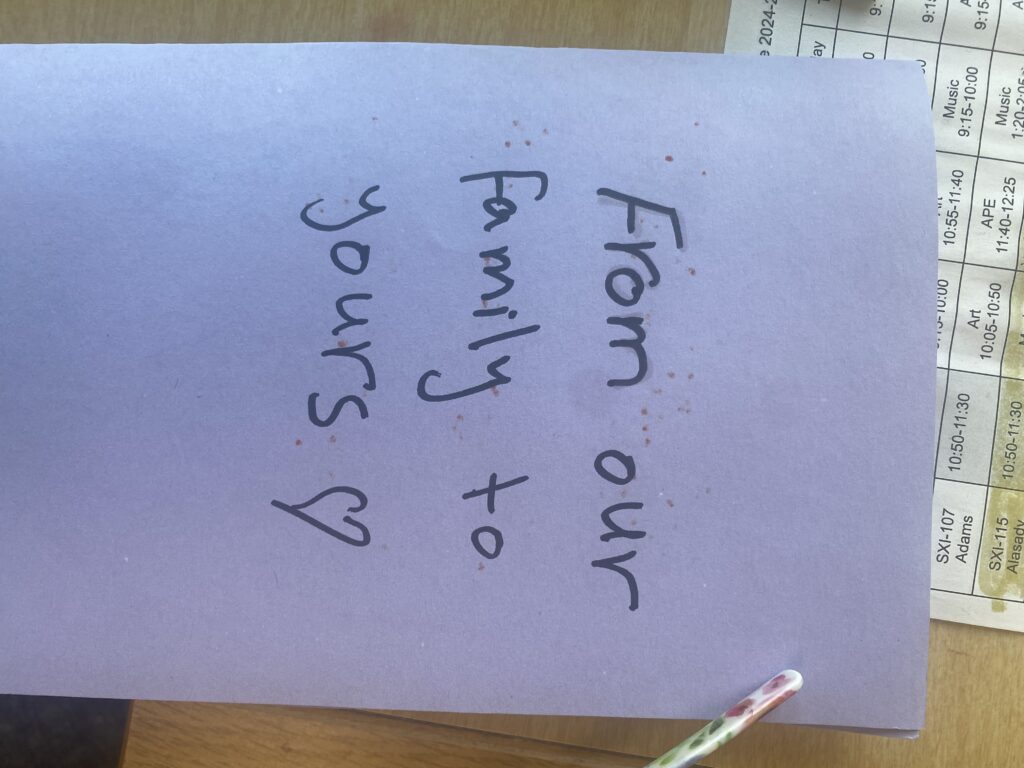 From our
Family to
yours ♡
2024-2
SXI-107
Adams
10:50-11:30
10:55-11:40
Music
9:15-10:00
SXI-115
Alasady
10:50-11:30
Art
10:05-10:50
APE
11:40-12:25
Music
1:20-2:05